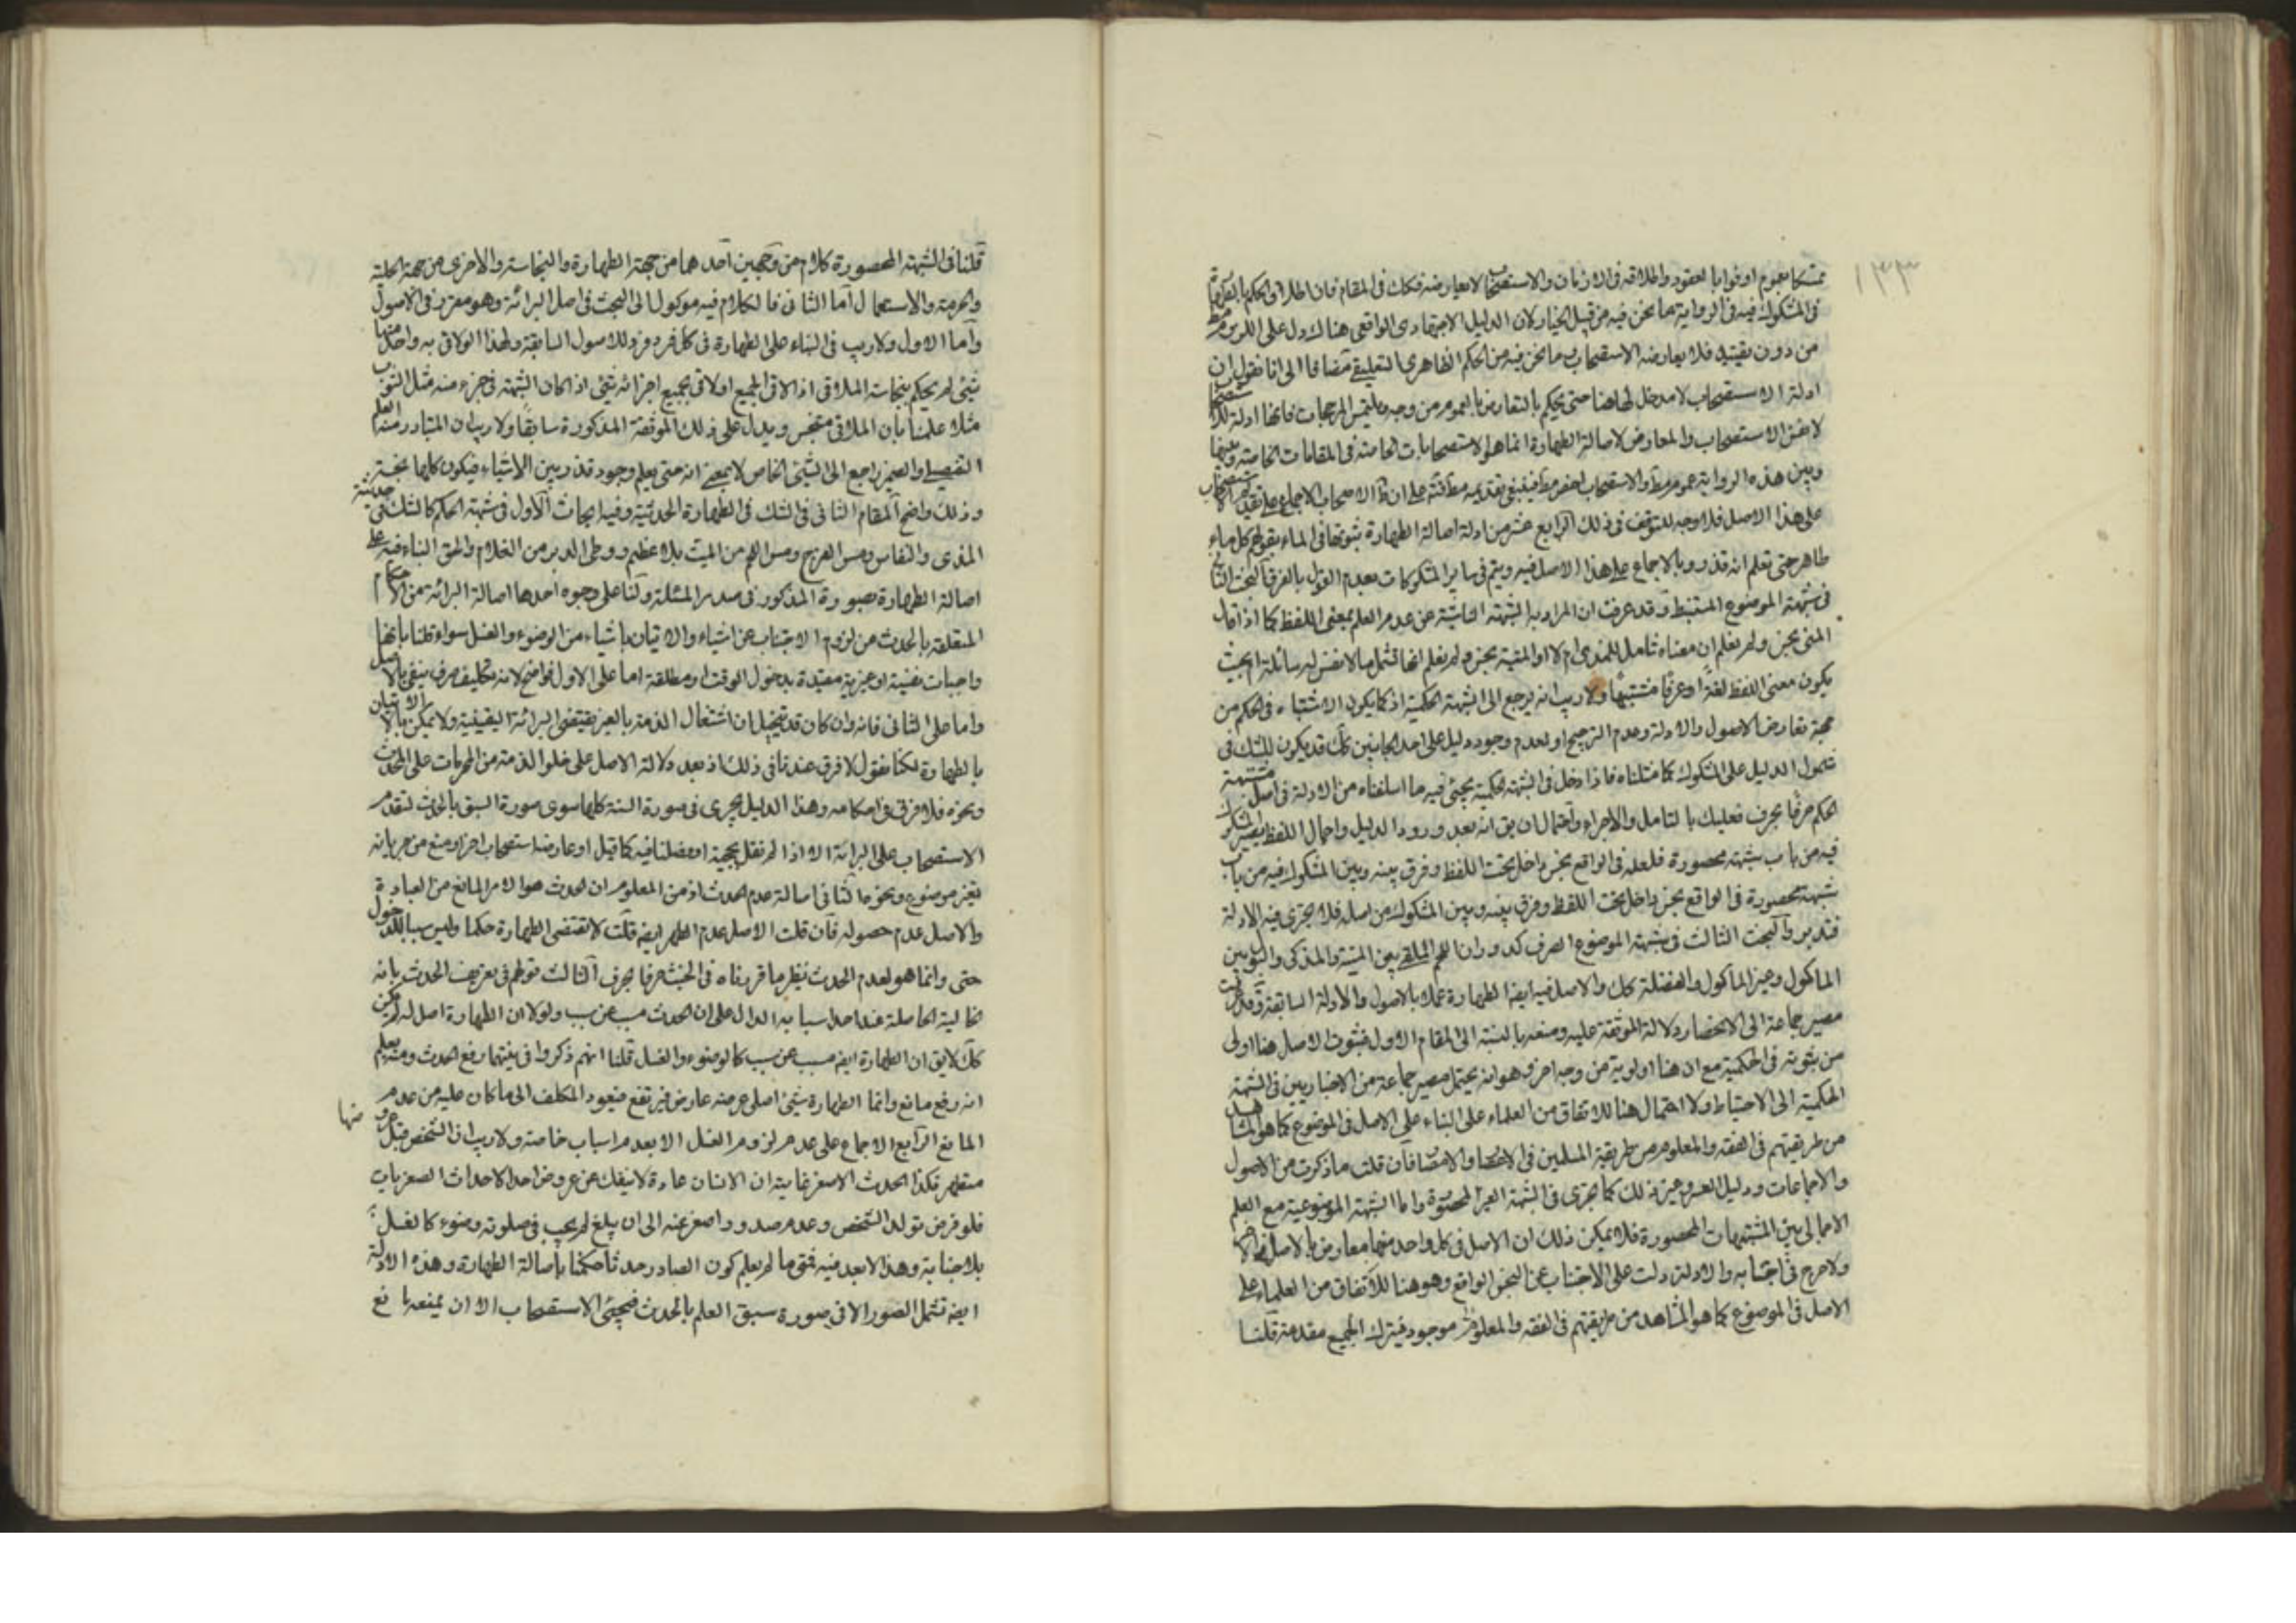 ١٣٣
متمسكا بعموم اوفوا بالعقود واطلاقه فى الازمان والاستصحاب لا يعارضه فكك فى المقام فان اطلاق الحكم
فى المشكوك فيه فى الرواية مما نحن فيه من قبيل الخيار لان الدليل الاجتهادى الواقعى هناك دل على اللزوم
من دون تقييد فلا يعارضه الاستصحاب وما نحن فيه من الحكم الظاهرى التعليقى مضافا الى انا نقول ان
ادلة الاستصحاب لا مدخل لها هنا حتى يحكم بالتعارض بالعموم من وجه ويلتمس المرجحات فانها ادلة
لا نفس الاستصحاب والمعارض لاصالة الطهارة انما هو الاستصحابات الخاصة فى المقامات الخاصة وبينها
وبين هذه الرواية عموم مط والاستصحاب اخص مط فينبغى تقديمه مط على ان ظ الاصحاب الاجماع على تقديم
على هذا الاصل فلا وجه للتوقف فى ذلك الرابع عشر من ادلة اصالة الطهارة ثبوتها فى الماء بقولهم كل ماء
طاهر حتى تعلم انه قذر وبالاجماع على هذا الاصل فيه ويتم فى ساير المشكوكات بعدم القول بالفرق البحث الثانى
فى شبهة الموضوع المستنبط وقد عرفت ان المراد به الشبهة الناشئة عن عدم العلم بمعنى اللفظ كما اذا قال
المنى نجس ولم نعلم ان معناه شامل للمذى ام لا او الميتة نجسة ولم نعلم انها تشمل ما لا نفس له سائلة ام بحيث
يكون معنى اللفظ لغة او عرفا مشتبها ولا ريب انه يرجع الى الشبهة الحكمية اذ كما يكون الاشتباه فى الحكم من
جهة تعارض الاصول والادلة وعدم الترجيح او لعدم وجود دليل على احد الجانبين كك قد يكون للشك فى
شمول الدليل على المشكوك كما مثلناه فاذا دخل فى الشبهة الحكمية يجئ فيه ما اسلفناه من الادلة فى اصل مشتبهة
الحكم حرفا بحرف فعليك بالتامل والاجراء واحتمال ان يق انه بعد ورود الدليل واجمال اللفظ يصير المشكوك
فيه من باب شبهة محصورة فلعله فى الواقع نجس داخل تحت اللفظ وفرق بينه وبين المشكوك فيه من باب
شبهة محصورة فى الواقع نجس داخل تحت اللفظ وفرق بينه وبين المشكوك من اصله فلا يجرى فيه الادلة
فتدبر والبحث الثالث فى شبهة الموضوع الصرف كدوران اللحم الملقى بين الميتة والمذكى والبول بين
الماكول وغير المأكول والفضلة كك والاصل فيه ايضه الطهارة عملا بالاصول والادلة السابقة وقد عرفت
مصير جماعة الى الانحصار دلالة الموثقة عليه ومنعه بالنسبة الى المقام الاول فثبوت الاصل هنا اولى
من ثبوته فى الحكمية مع ان هنا اولوية من وجه اخر وهو انه يحتمل مصير جماعة من الاخباريين فى الشبهة
الحكمية الى الاحتياط ولا احتمال هنا للاتفاق من العلماء على البناء على الاصل فى الموضوع كما هو المشاهد
من طريقتهم فى الفقه والمعلوم من طريقة المسلمين فى الاعصار والامصار فان قلت ما ذكرت من الاصول
والاجماعات ودليل العسر وغير ذلك كما يجرى فى الشبهة الغير المحصورة واما الشبهة الموضوعية مع العلم
الاجمالى بين المشتبهات المحصورة فلا يمكن ذلك ان الاصل فى كل واحد منهما معارض بالاصل فى الاخر
ولا حرج فى اجتنابه والادلة دلت على الاجتناب عن النجس الواقع وهو هنا للاتفاق من العلماء على
الاصل فى الموضوع كما هو المشاهد من طريقتهم فى الفقه والمعلوم موجود فيترك الجميع مقدمة قلنا
قلنا فى الشبهة المحصورة كلام من وجهين احدهما من جهة الطهارة والنجاسة والاخرى من جهة الحلية
والحرمة والاستعمال اما الثانى فالكلام فيه موكول الى البحث فى اصل البرائة وهو معزى فى الاصول
واما الاول ولا ريب فى البناء على الطهارة فى كل فرد فرد للاصول السابقة ولهذا لو لاقى به واحد منها
شئ لم يحكم بنجاسة الملاقى اذ الاقى الجميع او لاقى بجميع اجزائه شئ اذا كان الشبهة فى جزء منه مثل الثوب
مثلا علمنا بأن الملاقى متنجس ويدل على ذلك الموثقة المذكورة سابقا ولا ريب ان المتبادر منه العلم
التفصيلى والضمير راجع الى الشئ الخاص لا بمعنى انه متى يعلم وجود قذر بين الاشياء فيكون كلها نجسة
وذلك واضح المقام الثانى فى الشك فى الطهارة الحدثية وفيه ابحاث الاول فى شبهة الحكم كالشك فى حدثية
المذى والنفاس ومس الفرج ومس اللحم من الميت بلا عظم ووطى الدبر من الغلام والحق البناء فيه على
اصالة الطهارة بصورة المذكور فى صدر المسئلة ولنا على وجوه احدها اصالة البرائة من الاحكام
المتعلقة بالحدث من لزوم الاجتناب عن اشياء والاتيان باشياء من الوضوء والغسل سواء قلنا بأنها
واجبات نفسية او غيرية مقيدة بدخول الوقت او مطلقة اما على الاول فواضح لانه تكليف صرف ينفى بالاصل
واما على الثانى فانه وان كان قد يتخيل ان اشتغال الذمة بالغير يقتضى البرائة اليقينية ولا يمكن الا بالاتيان
بالطهارة لكنا نقول لا فرق عندنا فى ذلك اذ بعد دلالة الاصل على خلو الذمة من المحرمات على المحدث
ونحوه فلا فرق فى احكامه وهذا الدليل يجرى فى صورة الستة كلها سوى صورة السبق بالحدث لتقدم
الاستصحاب على البرائة الا اذا لم نقل بحجية او فصلنا فيه كما قيل او عارضه استصحاب اخر او منع من جريانه
تغير موضوع ونحوها الثانى اصالة عدم الحدث اذ من المعلوم ان الحدث هو الامر المانع من العبادة
والاصل عدم حصوله فان قلت الاصل عدم الطهر ايضه قلت لا تقتضى الطهارة حكما وليس سببا للدخول
حتى وانما هو لعدم الحدث نظير ما قررناه فى الخبث حرفا بحرف الثالث قولهم فى تعريف الحدث بانه
الحالية الحاصلة عند احد اسبابه الدال على ان الحدث مسبب عن سبب ولولا ان الطهارة اصل لم يكن
كك لا يق ان الطهارة ايضه مسبب عن سبب كالوضوء والغسل قلنا انهم ذكروا فى نيتهما رفع الحدث ومنه يعلم
انه رفع مانع وانما الطهارة شئ اصلى عرضه عارض فيرتفع فيعود المكلف الى ما كان عليه من عدم
المانع الرابع الاجماع على عدم لزوم الغسل الا بعد اسباب خاصة ولا ريب ان الشخص قبل عروض
منها
متطهر فكذا الحدث الاصغر غايته ان الانسان عادة لا ينفك عن عروض احد الاحداث الصغريات
فلو فرض تولد الشخص وعدم صدور اصغر عنه الى ان يبلغ لم يجب فى صلوته وضوء كالغسل
بلا جنابة وهذا لا بعد فيه فمتى ما لم يعلم كون الصادر حدثا حكمنا بأصالة الطهارة وهذه الادلة
ايضه تشمل الصور الا فى صورة سبق العلم بالحدث فيجئ الاستصحاب الا ان يمنعه مانع